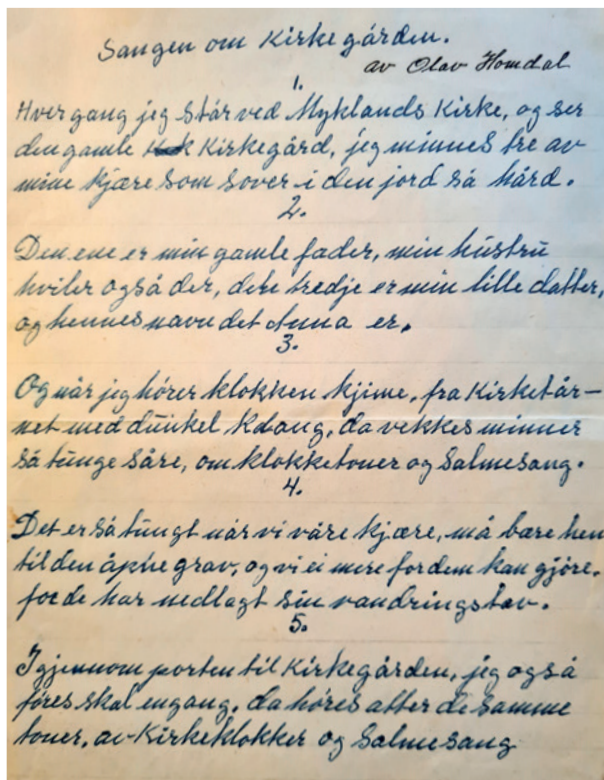 Sangen om Kirkegården.
av Olav Homdal
1.
Hver gang jeg står ved Myklands Kirke, og ser
den gamle Kirkegård, jeg minnes tre av
mine kjære som sover i den jord så hård.
2.
Den ene er min gamle fader, min hústrú
hviler også der, den tredje er min lille datter,
og hennes navn det Anna er.
3.
Og når jeg hórer klokken kjime, fra Kirketår-
net med dúnkel Klang, da vekkes minner
så túnge såre, om klokketoner og Salmesang.
4.
Det er så túngt når vi våre kjære, må bære hen
til den åpne grav, og vi ei mere for dem kan gjóre.
for de har nedlagt sin vandringstav.
5.
Igjennom porten til Kirkegården, jeg også
fóres skal engang, da hóres atter de samme
toner, av Kirkeklokker og Salmesang